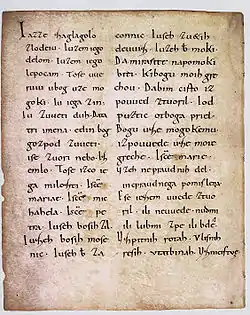 Iazze zaglagolo
zlodeiu. Iuzem iego
delom. Iuzem iego
lepocam. Tose uue
ruiu ubog uze mo
goki. Iu iega zin.
Iu zuueti duh. Data
tri imena. edin bog
gozpod zuueti.
ise zuori nebo. Iz
emlo. Tose izco ie
ga milozti. Isc̄e
mariae. Isc̄e mic
hahela. Isc̄e pe
tra. Iuseh bosih zil.
Iuzeh bosih mose
nic. Iuseh b̄ za
connic. Iuseh zuetih
deuuiz. Iuzeh b̄ moki.
Da mirastite napomoki
biti. Kibogu moih gre
chou. Dabim cisto iz
pouued ztuoril. Iod
puztic otboga priel.
Bogu uze mogokemu
izpouuede uze moie
greche. Isc̄e marie.
uzeh nepraudnih del.
inepraudnega pomislenia.
Ese iezem uuede ztuo
ril. ili neuuede. nudmi
ili lubmi zpe ili bdē.
Uzpitnih rotah. Vlisnih
resih. Vtatbinah. Vznicistue.